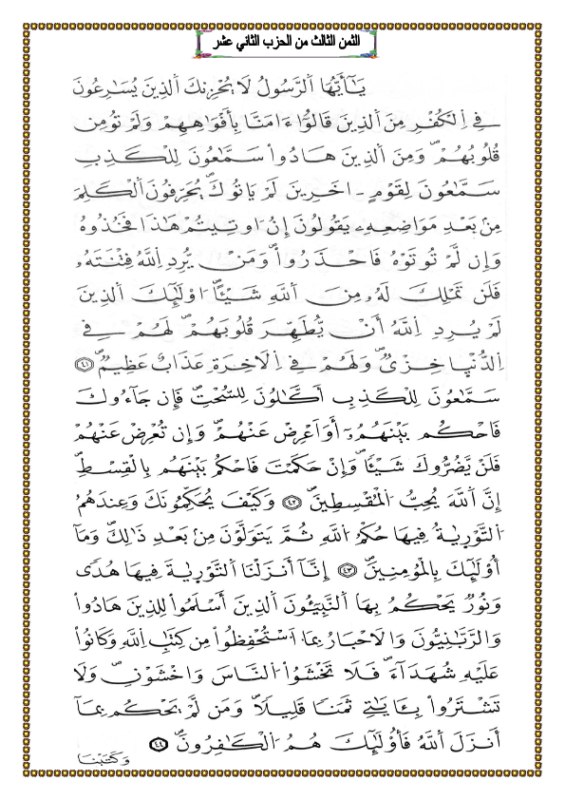 الثمن الثالث من الحزب الثاني عشر
يَٰٓأَيُّهَا اَ۬لرَّسُولُ لَا يُحْزِنكَ اَ۬لذِينَ يُسَٰرِعُونَ
فِے اِ۬لْكُفْرِ مِنَ اَ۬لذِينَ قَالُوٓاْ ءَامَنَّا بِأَفْوَٰهِهِمْ وَلَمْ تُومِن
قُلُوبُهُمْۖ وَمِنَ اَ۬لذِينَ هَادُواْ سَمَّٰعُونَ لِلْكَذِبِ
سَمَّٰعُونَ لِقَوْمٍ ـ اخَرِينَ لَمْ يَاتُوكَۖ يُحَرِّفُونَ اَ۬لْكَلِمَ
مِنۢ بَعْدِ مَوَاضِعِهِۦ يَقُولُونَ إِنُ ا۟وتِيتُمْ هَٰذَا فَخُذُوهُ
وَإِن لَّمْ تُوتَوْهُ فَاحْذَرُواْۖ وَمَنْ يُّرِدِ اِ۬للَّهُ فِتْنَتَهُۥ
فَلَن تَمْلِكَ لَهُۥ مِنَ اَ۬للَّهِ شَيْـٔاًۖ ا۟وْلَٰٓئِكَ اَ۬لذِينَ
لَمْ يُرِدِ اِ۬للَّهُ أَنْ يُّطَهِّرَ قُلُوبَهُمْۖ لَهُمْ فِے
اِ۬لدُّنْيَا خِزْيٞۖ وَلَهُمْ فِے اِ۬لَاخِرَةِ عَذَابٌ عَظِيمٞۖ ٤١
سَمَّٰعُونَ لِلْكَذِبِ أَكَّٰلُونَ لِلسُّحْتِۖ فَإِن جَآءُوكَ
فَاحْكُم بَيْنَهُمُۥٓ أَوَ اَعْرِضْ عَنْهُمْۖ وَإِن تُعْرِضْ عَنْهُمْ
فَلَنْ يَّضُرُّوكَ شَيْـٔاًۖ وَإِنْ حَكَمْتَ فَاحْكُم بَيْنَهُم بِالْقِسْطِۖ
إِنَّ اَ۬للَّهَ يُحِبُّ اُ۬لْمُقْسِطِينَۖ ٤٢ وَكَيْفَ يُحَكِّمُونَكَ وَعِندَهُمُ
اُ۬لتَّوْرَيٰةُ فِيهَا حُكْمُ اُ۬للَّهِ ثُمَّ يَتَوَلَّوْنَ مِنۢ بَعْدِ ذَٰلِكَۖ وَمَآ
أُوْلَٰٓئِكَ بِالْمُومِنِينَۖ ٤٣ إِنَّآ أَنزَلْنَا اَ۬لتَّوْرَيٰةَ فِيهَا هُديٗ
وَنُورٞ يَحْكُمُ بِهَا اَ۬لنَّبِيٓـُٔونَ اَ۬لذِينَ أَسْلَمُواْ لِلذِينَ هَادُواْ
وَالرَّبَّٰنِيُّونَ وَالَاحْبَارُ بِمَا اَ۟سْتُحْفِظُواْ مِن كِتَٰبِ اِ۬للَّهِ وَكَانُواْ
عَلَيْهِ شُهَدَآءَۖ فَلَا تَخْشَوُاْ اُ۬لنَّاسَ وَاخْشَوْنِۖ وَلَا
تَشْتَرُواْ بِـَٔايَٰتِے ثَمَناٗ قَلِيلاٗۖ وَمَن لَّمْ يَحْكُم بِمَآ
أَنزَلَ اَ۬للَّهُ فَأُوْلَٰٓئِكَ هُمُ اُ۬لْكَٰفِرُونَۖ ٤٤
وَكَتَبْنَا